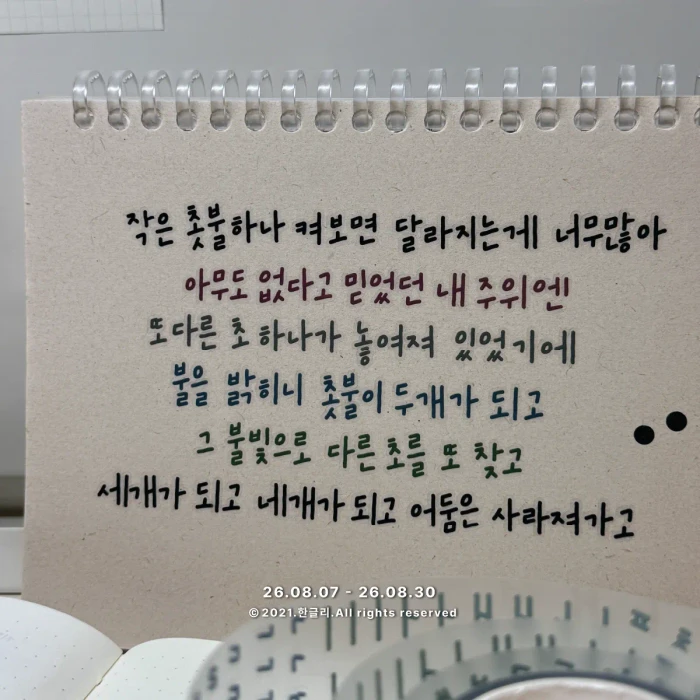 작은 촛불하나 켜보면 달라지는게 너무많아
아무도 없다고 믿었던 내 주위엔!
또다른 초 하나가 놓여져 있었기에
불을 밝히니 촛불이 두개가 되고
그 불빛으로 다른초를 또 찾고
세개가 되고 네개가 되고 어둠은 사라져가고
26.08.07 - 26.08.30
©2021.한글리.All rights reserved